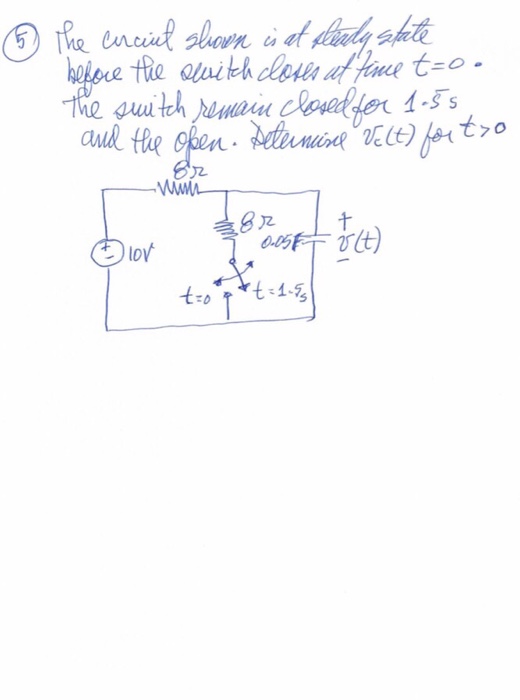 5 The circuit shown is at steady state
before the switch closes at time t=0.
The switch remain closed for 1.5 s
and the open. Determine Vc(t) for t>0
8Ω
8Ω
0.05F
+
v(t)
-
+
-
10V
t=0
t=1.5s